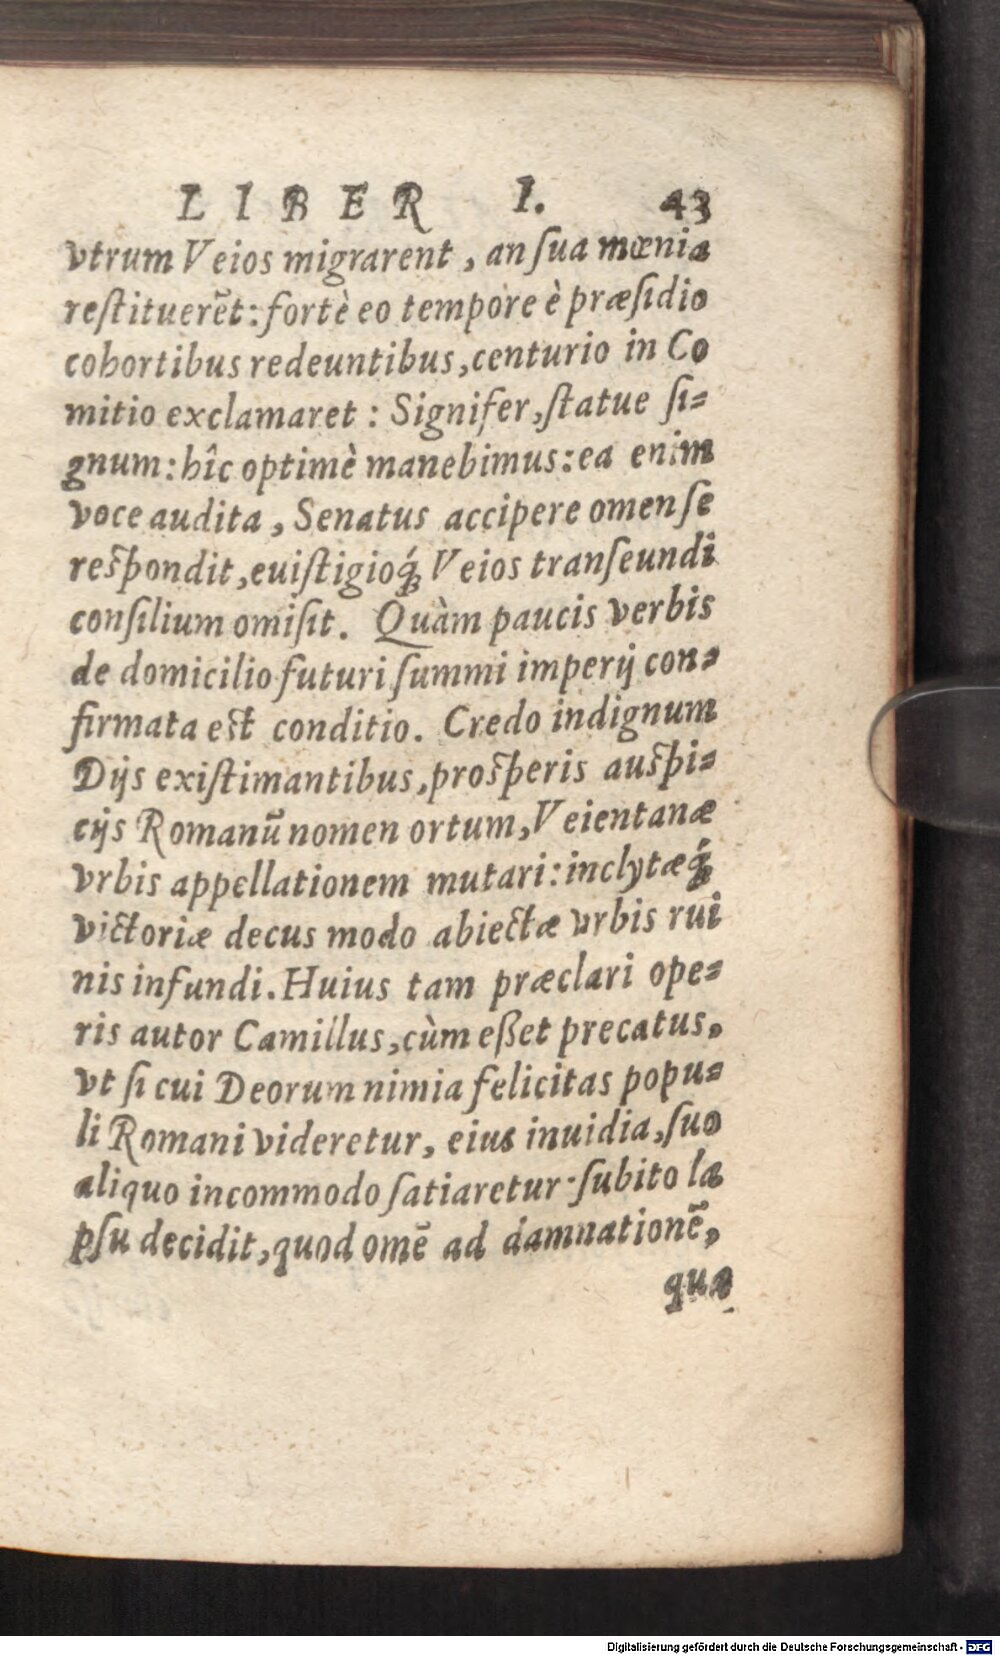 LIBER I. 43
vtrum Veios migrarent, an ſua mœnia
reſtituerẽt: fortè eo tempore è præſidio
cohortibus redeuntibus, centurio in Co
mitio exclamaret: Signifer, ſtatue ſi-
gnum: hîc optimè manebimus: ea enim
voce audita, Senatus accipere omen ſe
reſpondit, eviſtigioq́; Veios tranſeundi
conſilium omiſit. Quàm paucis verbis
de domicilio futuri ſummi imperij con-
firmata eſt conditio. Credo indignum
Dijs exiſtimantibus, proſperis auſpi-
cijs Romanũ nomen ortum, Veientanæ
vrbis appellationem mutari: inclytæq́;
victoriæ decus modo abiectæ vrbis rui
nis infundi. Huius tam præclari ope-
ris autor Camillus, cùm eßet precatus,
vt ſi cui Deorum nimia felicitas popu-
li Romani videretur, eius inuidia, ſuo
aliquo incommodo ſatiaretur: ſubito la
pſu decidit, quod omẽ ad damnationẽ,
qua
Digitalisierung gefördert durch die Deutsche Forschungsgemeinschaft - DFG